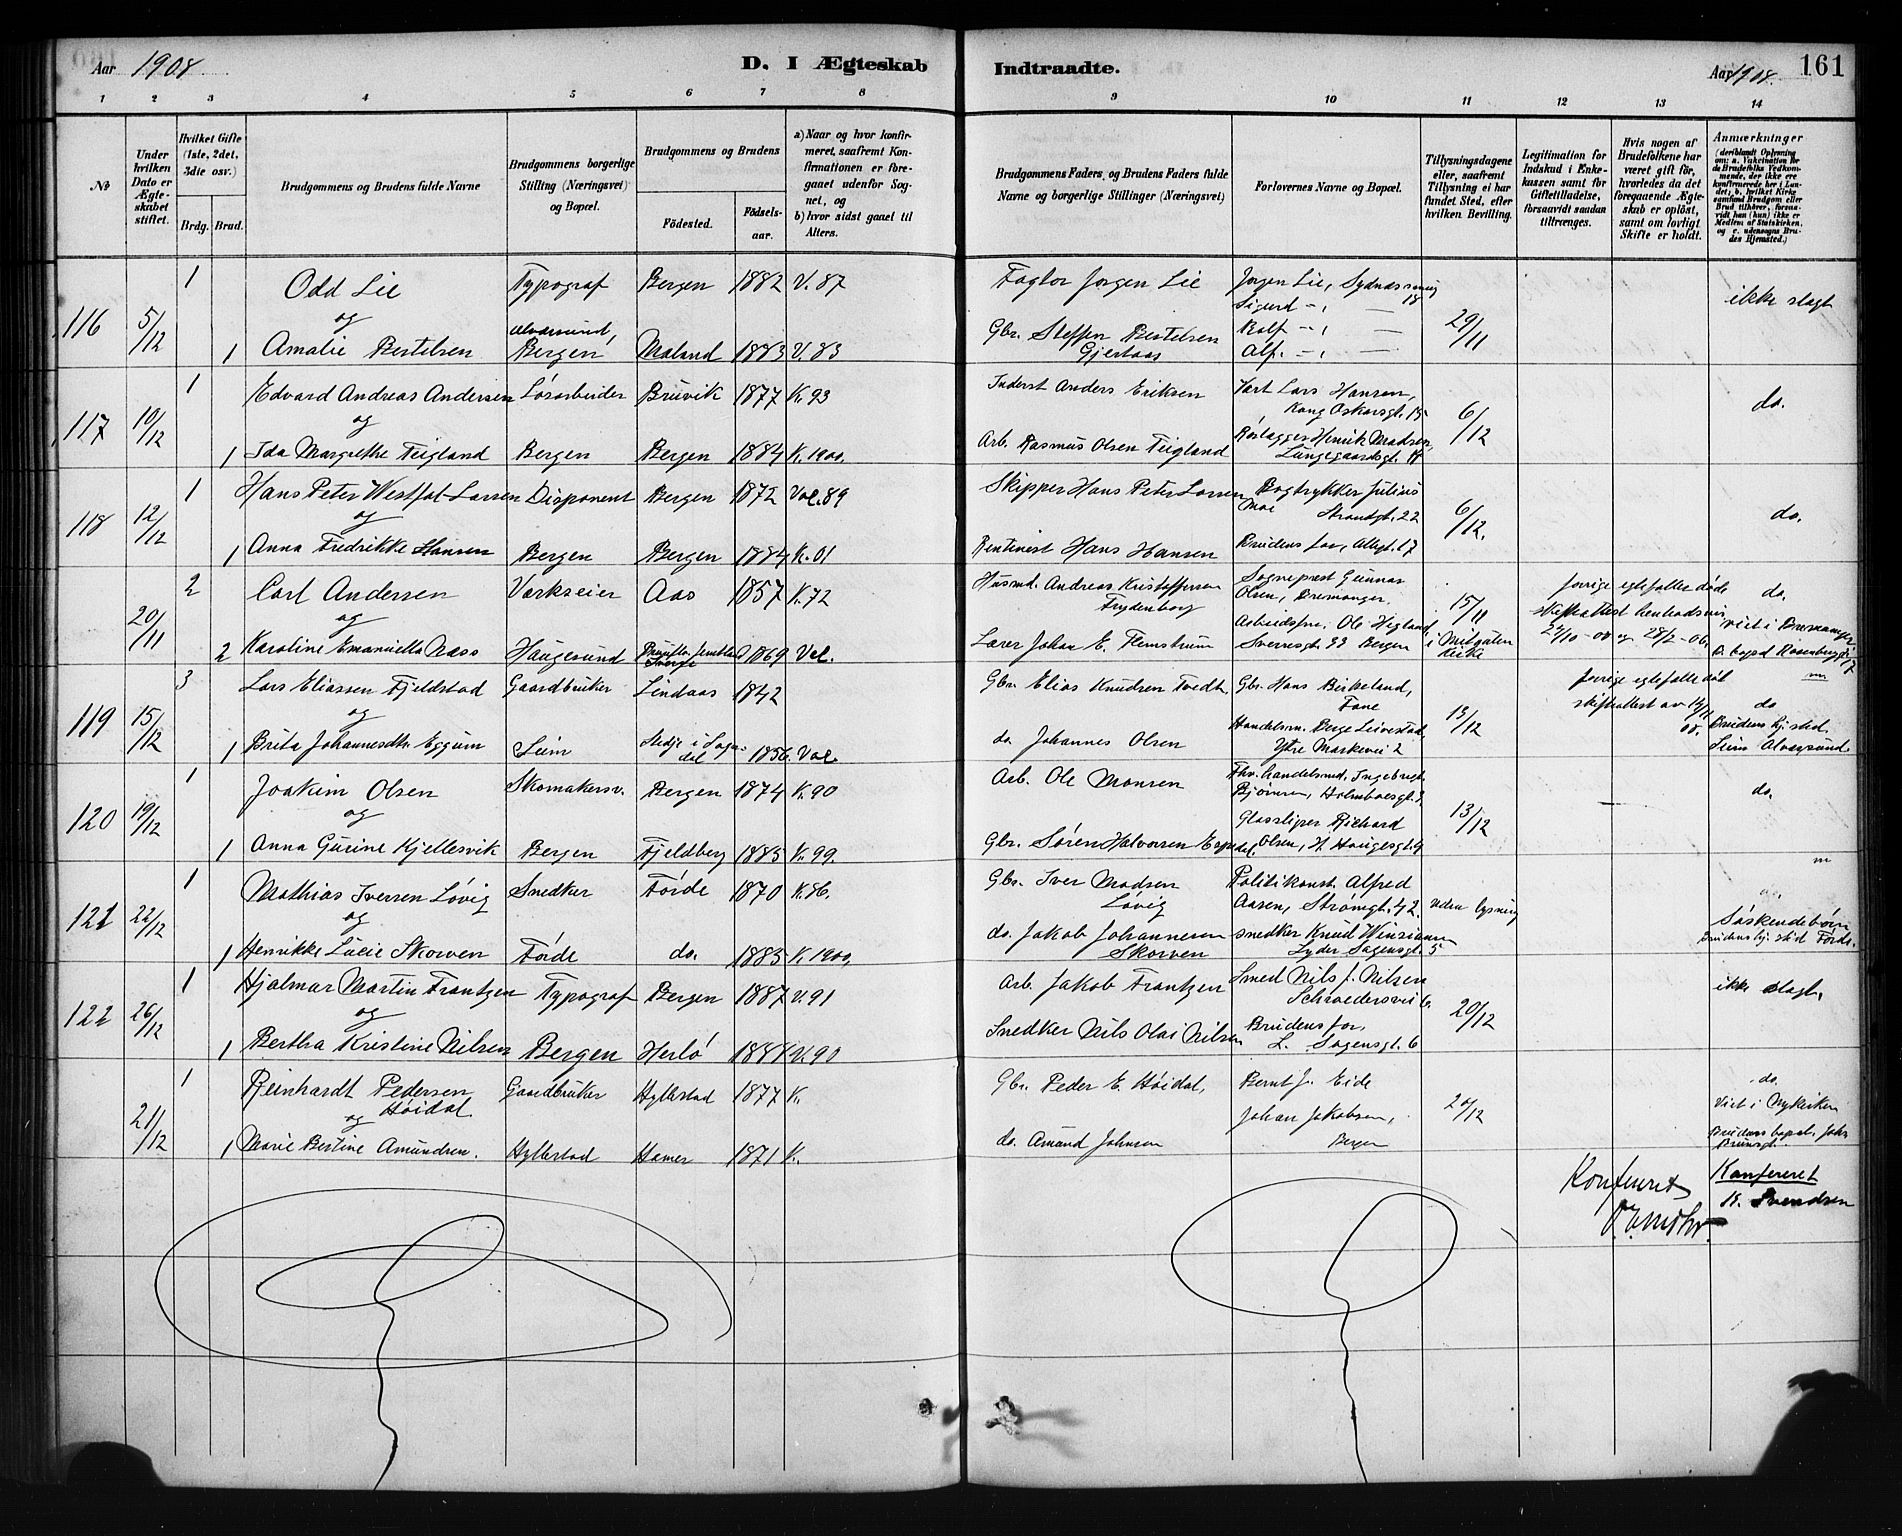 Aar 1908.
D. I Ægteskab Indtraadte.
Aar 1908.
161
1 2 3 4 5 6 7 8 9 10 11 12 13 14
№
Under hvilken Dato er Ægteskabet stiftet.
Hvilket Gifte (1ste, 2det, 3die osv.)
Brdg. Brud.
Brudgommens og Brudens fulde Navne
Brudgommens borgerlige Stilling (Næringsvei) og Bopæl.
Brudgommens og Brudens
Födested.
Födselsaar.
a) Naar og hvor konfirmeret, saafremt Konfirmationen er foregaaet udenfor Sognet, og
b) hvor sidst gaaet til Alters.
Brudgommens Faders og Brudens Faders fulde Navne og borgerlige Stillinger (Næringsvei)
Forlovernes Navne og Bopæl.
Tillysningsdagene eller, saafremt Tillysning ei har fundet Sted, efter hvilken Bevilling.
Legitimation for Indskud i Enkekassen samt for Giftetilladelse, forsaavidt saadan tiltrænges.
Hvis nogen af Brudefolkene har været gift för, hvorledes da det foregaaende Ægteskab er oplöst, samt om lovligt Skifte er holdt.
Anmærkninger
(deriblandt Oplysning om: a. Vakcination for de Brudefolks Vedkommende, der ikke ere konfirmerede her i Landet; b. hvilket Kirkesamfund Brudgom eller Brud tilhörer, forsaavidt han (hun) ikke er Medlem af Statskirken, og c. udensogns Brudes Hjemsted.)
116 5/12 1 Odd Lie Typograf Bergen 1882 V. 87 Faktor Jørgen Lie Jørgen Lie, Sydnæssmug 18 29/11 ikke slagt
og
Sigurd
Rolf
Alf.
1 Amalie Bertelsen Alversund, Bergen Maland 1883 V. 83 Gbr. Steffen Bertelsen Gjertaas
117 10/12 1 Edvard Andreas Andersen Løsarbeider Bruvik 1877 K. 93 Inderst Anders Eriksen Vert Lars Hansen, Kong Oskarsgt. 15 6/12 do.
og
1 Ida Margrethe Teigland Bergen Bergen 1884 K. 1900. Arb. Rasmus Olsen Teigland Rørlægger Henrik Madsen, Lungegaardsgt. 14
118 12/12 1 Hans Peter Westfal-Larsen Disponent Bergen 1872 Vol. 89 Skipper Hans Peter Larsen Bogtrykker Julius Moe Strandgt. 22 6/12. do.
og
1 Anna Fredrikke Hansen Bergen Bergen 1884 K. 01 Rentinist Hans Hansen Brudens far, Allegt. 17
20/11 2 Carl Andersen Værkseier Aas 1857 K. 72 Husmd. Andreas Kristoffersen Frydenborg Sogneprest Gunnar Olsen, Bremanger. 15/11 forrige egtefaller døde do.
og
2 Karoline Emanuella Næss Haugesund 1869 Vol. Lærer Johan E. Flemstrøm Arbeidsfm. Ole Hegland, Sverresgt. 33 Bergen
skifteattest henholdsvis 24/10-08 og 28/2-06. viet i Bremanger
3 Lars Eliassen Fjeldstad Gaardbruker Lindaas 1842 Gbr. Elias Knudsen Tvedt Gbr. Hans Birkeland, Fane forrige egtefelle død
119 15/12 og 13/12 skifteattest av 14/11 08. do
1 Brita Johannesdtr. Eggum Seim Stedje i Sogndal 1856. Vol. do Johannes Olsen Handelsm. Berge Leivestad, Ytre Markevei 2 Brudens hj.sted. Seim Alversund
120 19/12 1 Joakim Olsen Skomakersv. Bergen 1874 K. 90 Arb. Ole Monsen Fhv. handelsmd. Ingebrigt Bjørnsen, Holmboesgt. 3. 13/12 do.
og
1 Anna Gurine Kjellesvik Bergen Fjeldberg 1883 K. 99. Gbr. Søren Halvorsen Glassliper Richard Olsen, H. Haugesgt. 9
121 22/12 1 Mathias Iversen Løvig Snedker Førde 1870 K. 86. Gbr. Iver Madsen Løvig Politikonst. Alfred Aasen, Strømgt. 42. uden lysning do.
og
Søskendebørn
1 Henrikke Lucie Skorven Førde do. 1883 K. 1900, do. Jakob Johannesen Skorven snedker Knud Lyder Sagensgt. 5 Brudens hj.sted Førde.
122 26/12 1 Hjalmar Martin Frantzen Typograf Bergen 1887 V. 91 Arb. Jakob Frantzen Smed Nils J. Nilsen Schrøedersvei 6. 20/12 ikke slagt,
og
1 Bertha Kristine Nilsen Bergen Herlø 1884 V. 90 Snedker Nils Olai Nilsen Brudens far, L. Sagensgt. 6
21/12 1 Reinhardt Pedersen Høidal Gaardbruker Hyllestad 1877 K. Gbr. Peder E. Høidal, Bernt J. Eide 20/12 do.
og
Viet i Nykirken
1 Marie Bertine Amundsen. Hyllestad Hamer 1871 K. do. Amund Johnsen Johan Jakobsen, Bergen
Konfereret
Konfereret
K. Svendsen